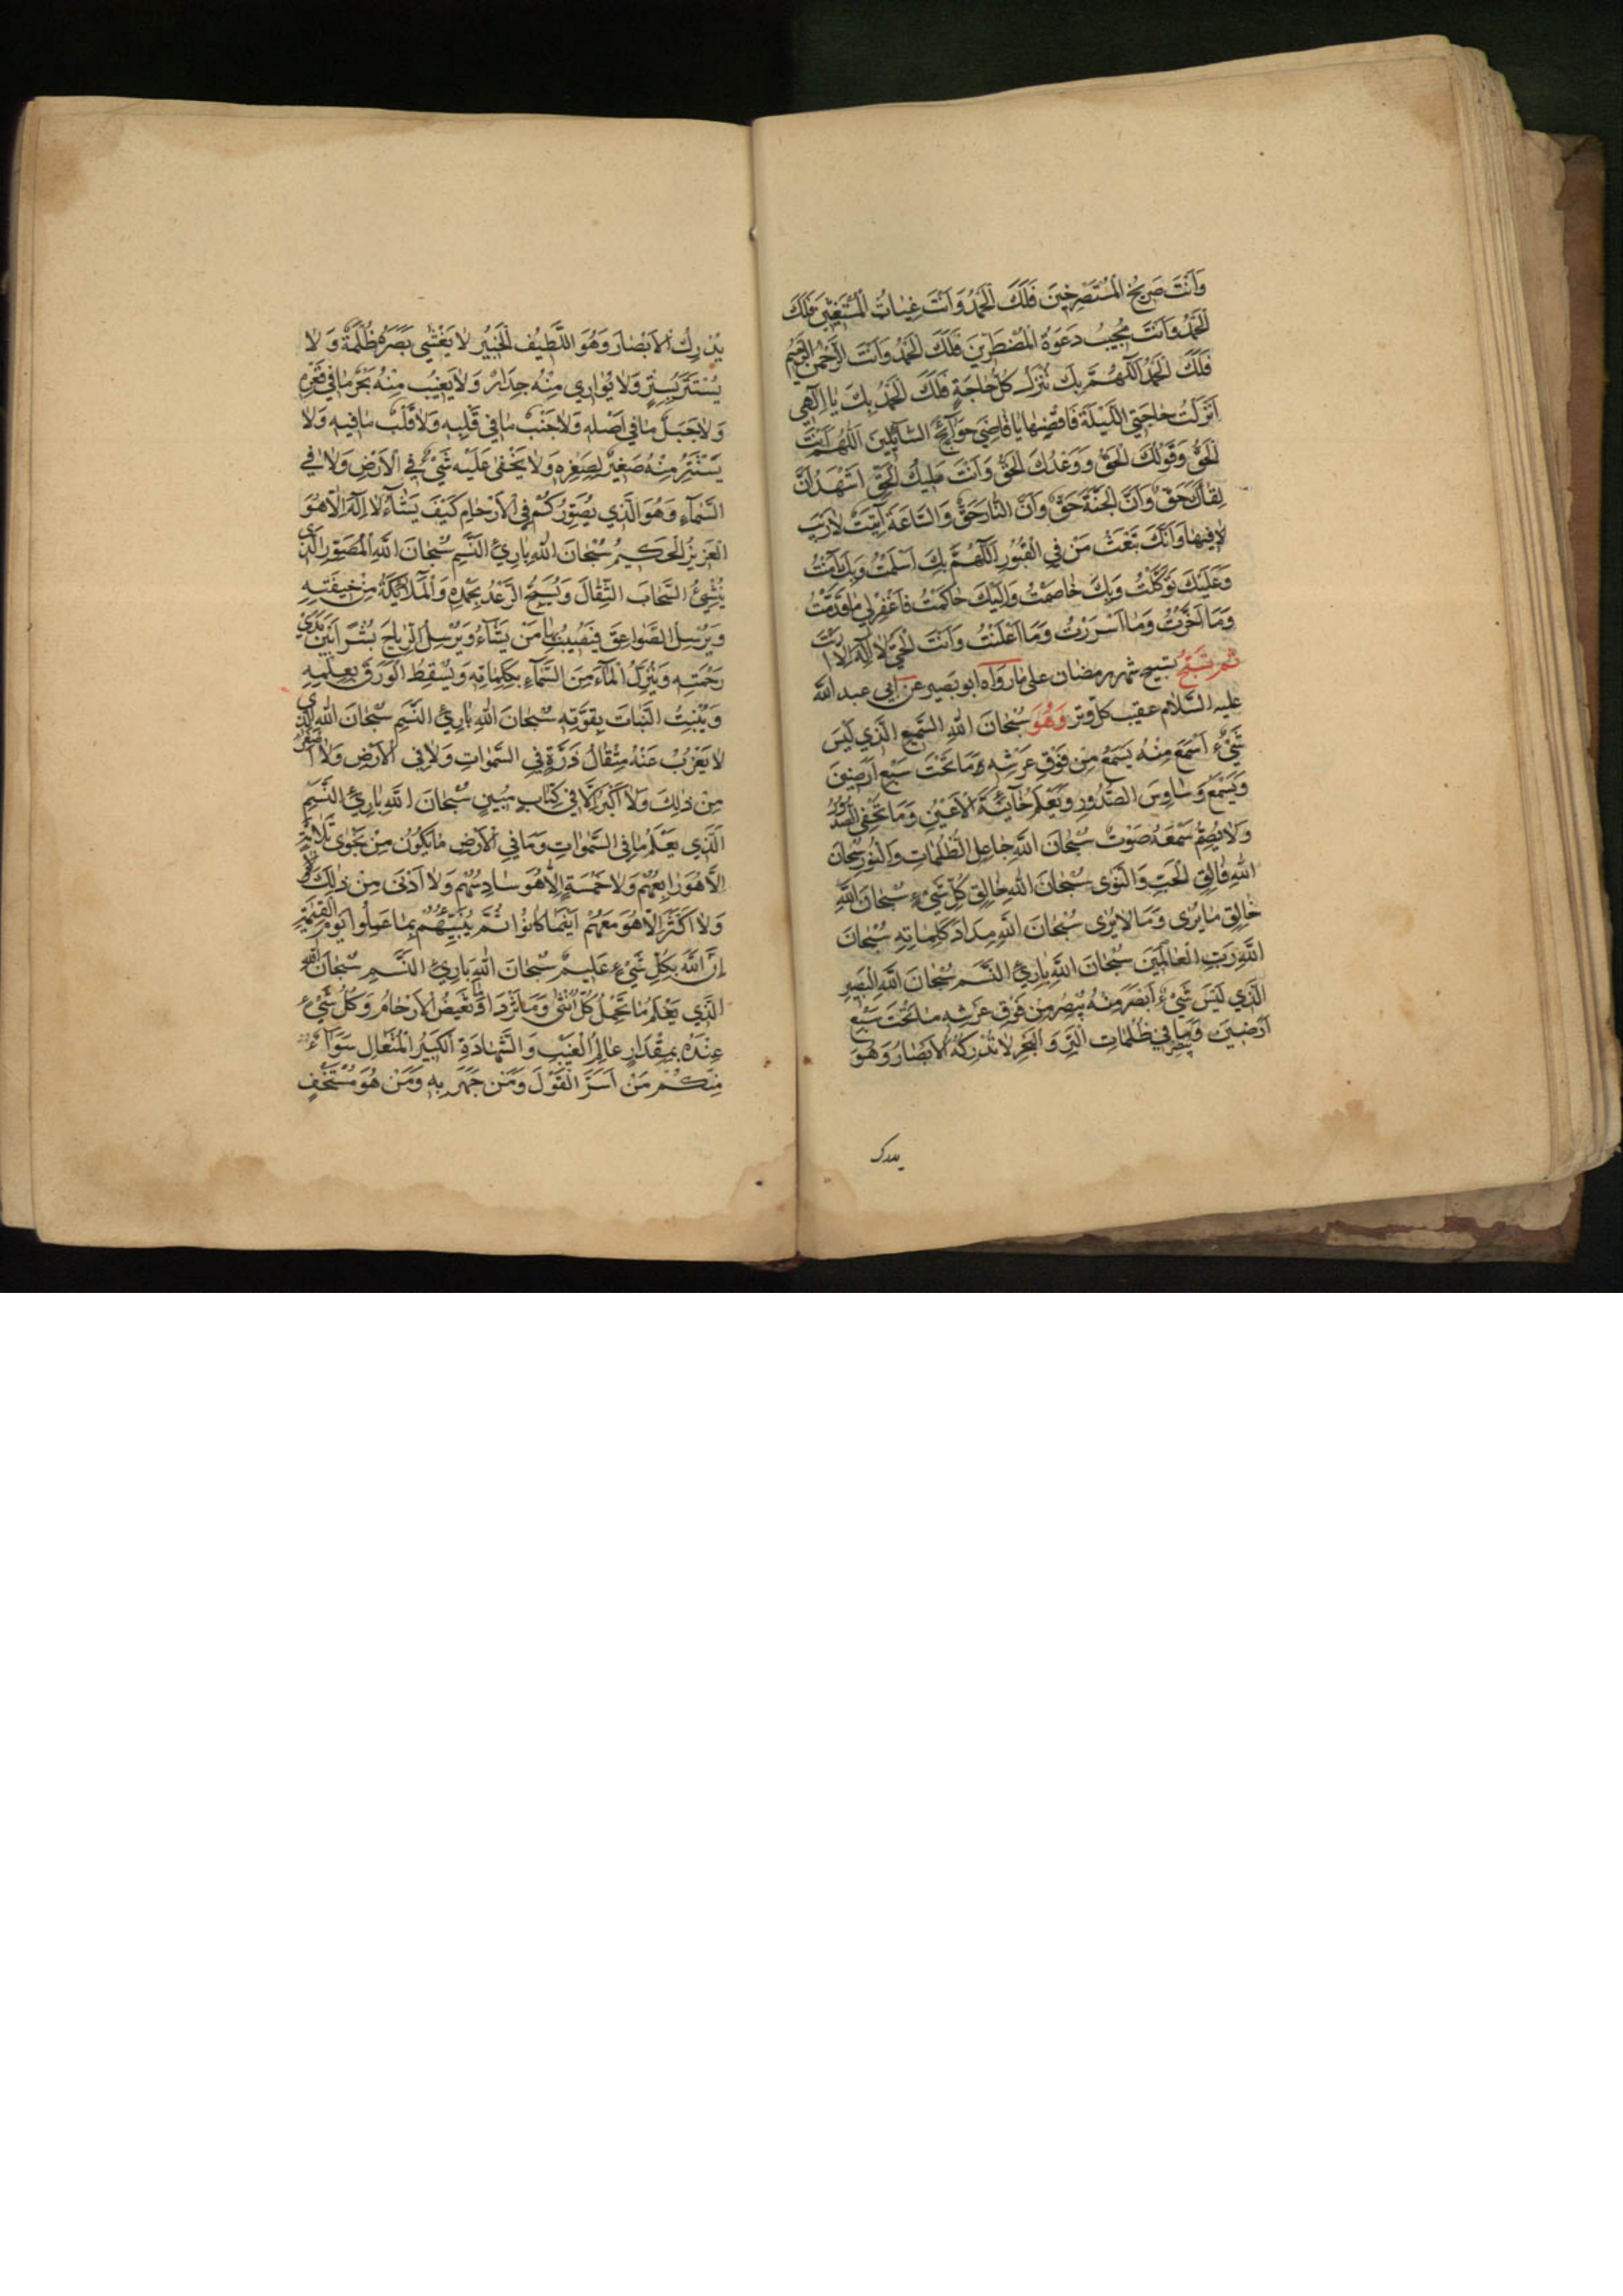 وَاَنْتَ صَرِيخُ الْمُسْتَصْرِخِينَ فَلَكَ الْحَمْدُ وَاَنْتَ غِيٰاثُ الْمُسْتَغِيثِينَ فَلَكَ
الْحَمْدُ وَاَنْتَ مُجِيبُ دَعْوَةِ الْمُضْطَرِّينَ فَلَكَ الْحَمْدُ وَاَنْتَ الرَّحْمٰنُ الرَّحِيمُ
فَلَكَ الْحَمْدُ اَللّٰهُمَّ بِكَ تُنْزَلُ كُلُّ حٰاجَةٍ فَلَكَ الْحَمْدُ بِكَ يٰا اِلٰهِي
اَنْزَلْتُ حٰاجَتِي اللَّيْلَةَ فَاقْضِهٰا يٰا قٰاضِيَ حَوٰآئِجِ السّٰآئِلِينَ اَللّٰهُمَّ اَنْتَ
الْحَقُّ وَقَوْلُكَ الْحَقُّ وَوَعْدُكَ الْحَقُّ وَاَنْتَ مَلِيكُ الْحَقِّ اَشْهَدُ اَنَّ
لِقٰآءَكَ حَقٌّ وَاَنَّ الْجَنَّةَ حَقٌّ وَاَنَّ النّٰارَ حَقٌّ وَالسّٰاعَةَ اٰتِيَةٌ لٰا رَيْبَ
فِيهٰا وَاَنَّكَ تَبْعَثُ مَنْ فِي الْقُبُورِ اَللّٰهُمَّ بِكَ اَسْلَمْتُ وَبِكَ اٰمَنْتُ
وَعَلَيْكَ تَوَكَّلْتُ وَبِكَ خٰاصَمْتُ وَاِلَيْكَ حٰاكَمْتُ فَاغْفِرْ لِي مٰا قَدَّمْتُ
وَمٰا اَخَّرْتُ وَمٰا اَسْرَرْتُ وَمٰا اَعْلَنْتُ وَاَنْتَ الْحَيُّ لٰا اِلٰهَ اِلّٰا اَنْتَ
ثم تسبّح تسبيح شهر رمضان على ما رواه ابو بصير عن ابى عبد اللّه
عليه السّلام عقيب كل وتر وَهُوَ سُبْحٰانَ اللّٰهِ السَّمِيعِ الَّذِي لَيْسَ
شَيْءٌ اَسْمَعَ مِنْهُ يَسْمَعُ مِنْ فَوْقِ عَرْشِهِ مٰا تَحْتَ سَبْعِ اَرَضِينَ
وَيَسْمَعُ وَسٰاوِسَ الصُّدُورِ وَيَعْلَمُ خٰآئِنَةَ الْاَعْيُنِ وَمٰا تُخْفِي الصُّدُورُ
وَلٰا يُصِمُّ سَمْعَهُ صَوْتٌ سُبْحٰانَ اللّٰهِ جٰاعِلِ الظُّلُمٰاتِ وَالنُّورِ سُبْحٰانَ
اللّٰهِ فٰالِقِ الْحَبِّ وَالنَّوٰى سُبْحٰانَ اللّٰهِ خٰالِقِ كُلِّ شَيْءٍ سُبْحٰانَ اللّٰهِ
خٰالِقِ مٰا يُرٰى وَمٰا لٰا يُرٰى سُبْحٰانَ اللّٰهِ مِدٰادَ كَلِمٰاتِهِ سُبْحٰانَ
اللّٰهِ رَبِّ الْعٰالَمِينَ سُبْحٰانَ اللّٰهِ بٰارِئِ النَّسَمِ سُبْحٰانَ اللّٰهِ الْبَصِيرِ
الَّذِي لَيْسَ شَيْءٌ اَبْصَرَ مِنْهُ يُبْصِرُ مِنْ فَوْقِ عَرْشِهِ مٰا تَحْتَ سَبْعِ
اَرَضِينَ وَيُبْصِرُ مٰا فِي ظُلُمٰاتِ الْبَرِّ وَالْبَحْرِ لٰا تُدْرِكُهُ الْاَبْصٰارُ وَهُوَ
يدرك
يُدْرِكُ الْاَبْصٰارَ وَهُوَ اللَّطِيفُ الْخَبِيرُ لٰا يَغْشٰى بَصَرَهُ ظُلْمَةٌ وَلٰا
يُسْتَتَرُ بِسِتْرٍ وَلٰا يُوٰارِي مِنْهُ جِدٰارٌ وَلٰا يَغِيبُ مِنْهُ بَحْرٌ مٰا فِي قَعْرِهِ
وَلٰا جَبَلٌ مٰا فِي اَصْلِهِ وَلٰا جَنْبٌ مٰا فِي قَلْبِهِ وَلٰا قَلْبٌ مٰا فِيهِ وَلٰا
يَسْتَتِرُ مِنْهُ صَغِيرٌ لِصِغَرِهِ وَلٰا يَخْفٰى عَلَيْهِ شَيْءٌ فِي الْاَرْضِ وَلٰا فِي
السَّمٰآءِ وَهُوَ الَّذِي يُصَوِّرُكُمْ فِي الْاَرْحٰامِ كَيْفَ يَشٰآءُ لٰا اِلٰهَ اِلّٰا هُوَ
الْعَزِيزُ الْحَكِيمُ سُبْحٰانَ اللّٰهِ بٰارِئِ النَّسَمِ سُبْحٰانَ اللّٰهِ الْمُصَوِّرِ الَّذِي
يُنْشِئُ السَّحٰابَ الثِّقٰالَ وَيُسَبِّحُ الرَّعْدُ بِحَمْدِهِ وَالْمَلٰآئِكَةُ مِنْ خِيفَتِهِ
وَيُرْسِلُ الصَّوٰاعِقَ فَيُصِيبُ بِهٰا مَنْ يَشٰآءُ وَيُرْسِلُ الرِّيٰاحَ بُشْرًا بَيْنَ يَدَيْ
رَحْمَتِهِ وَيُنَزِّلُ الْمٰآءَ مِنَ السَّمٰآءِ بِكَلِمٰاتِهِ وَيُسْقِطُ الْوَرَقَ بِعِلْمِهِ
وَيُنْبِتُ النَّبٰاتَ بِقُوَّتِهِ سُبْحٰانَ اللّٰهِ بٰارِئِ النَّسَمِ سُبْحٰانَ اللّٰهِ الَّذِي
لٰا يَعْزُبُ عَنْهُ مِثْقٰالُ ذَرَّةٍ فِي السَّمٰوٰاتِ وَلٰا فِي الْاَرْضِ وَلٰا اَصْغَرُ
مِنْ ذٰلِكَ وَلٰا اَكْبَرُ اِلّٰا فِي كِتٰابٍ مُبِينٍ سُبْحٰانَ اللّٰهِ بٰارِئِ النَّسَمِ
الَّذِي يَعْلَمُ مٰا فِي السَّمٰوٰاتِ وَمٰا فِي الْاَرْضِ مٰا يَكُونُ مِنْ نَجْوٰى ثَلٰاثَةٍ
اِلّٰا هُوَ رٰابِعُهُمْ وَلٰا خَمْسَةٍ اِلّٰا هُوَ سٰادِسُهُمْ وَلٰا اَدْنٰى مِنْ ذٰلِكَ
وَلٰا اَكْثَرَ اِلّٰا هُوَ مَعَهُمْ اَيْنَمٰا كٰانُوا ثُمَّ يُنَبِّئُهُمْ بِمٰا عَمِلُوا يَوْمَ الْقِيٰمَةِ
اِنَّ اللّٰهَ بِكُلِّ شَيْءٍ عَلِيمٌ سُبْحٰانَ اللّٰهِ بٰارِئِ النَّسَمِ سُبْحٰانَ اللّٰهِ
الَّذِي يَعْلَمُ مٰا تَحْمِلُ كُلُّ اُنْثٰى وَمٰا تَغِيضُ الْاَرْحٰامُ وَمٰا تَزْدٰادُ وَكُلُّ شَيْءٍ
عِنْدَهُ بِمِقْدٰارٍ عٰالِمُ الْغَيْبِ وَالشَّهٰادَةِ الْكَبِيرُ الْمُتَعٰالِ سَوٰآءٌ
مِنْكُمْ مَنْ اَسَرَّ الْقَوْلَ وَمَنْ جَهَرَ بِهِ وَمَنْ هُوَ مُسْتَخْفٍ